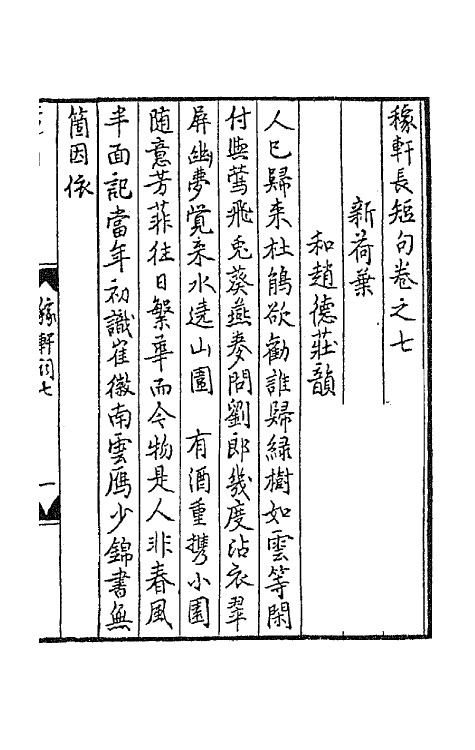 稼軒長短句卷之七
新荷葉
和趙德莊韻
人已歸来杜鵑欲勸誰歸緑樹如雲等閑
付與鶯飛兎葵燕麥問劉郎幾度沾衣翠
屏幽夢覺来水遶山圍 有酒重携小園
随意芳菲往日繁華而今物是人非春風
半面記當年初識崔徽南雲鴈少錦書無
箇因依
稼軒詞七
一